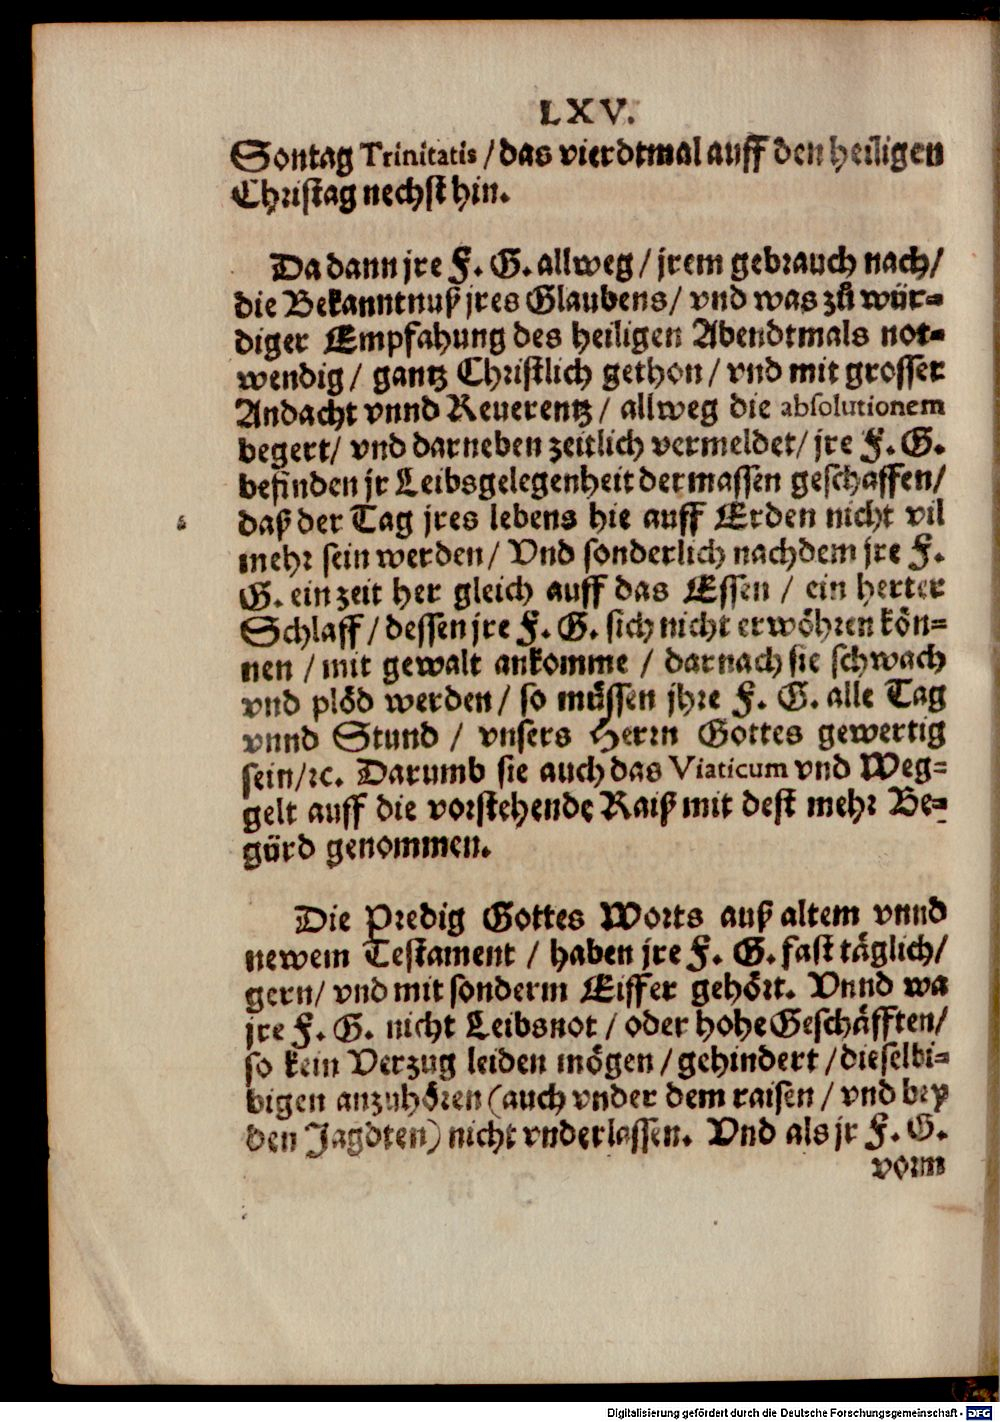 LXV.
Sontag Trinitatis / das vierdtmal auff den heiligen
Christag nechst hin.
Da dann jre F. G. allweg / jrem gebrauch nach /
die Bekanntnuß jres Glaubens / vnd was zů wür-
diger Empfahung des heiligen Abendtmals not-
wendig / gantz Christlich gethon / vnd mit grosser
Andacht vnnd Reuerentz / allweg die absolutionem
begert / vnd darneben zeitlich vermeldet / jre F. G.
befinden jr Leibsgelegenheit dermassen geschaffen /
daß der Tag jres lebens hie auff Erden nicht vil
mehr sein werden / Vnd sonderlich nachdem jre F.
G. ein zeit her gleich auff das Essen / ein herter
Schlaff / dessen jre F. G. sich nicht erwöhren kön-
nen / mit gewalt ankomme / darnach sie schwach
vnd plöd werden / so müssen jhre F. G. alle Tag
vnnd Stund / vnsers Herrn Gottes gewertig
sein / ꝛc. Darumb sie auch das Viaticum vnd Weg-
gelt auff die vorstehende Raiß mit dest mehr Be-
gürd genommen.
Die Predig Gottes Worts auß altem vnnd
newem Testament / haben jre F. G. fast täglich /
gern / vnd mit sonderm Eiffer gehört. Vnnd wa
jre F. G. nicht Leibsnot / oder hohe Geschäfften /
so kein Verzug leiden mögen / gehindert / dieselbi-
bigen anzuhören (auch vnder dem raisen / vnd bey
den Jagdten) nicht vnderlassen. Vnd als jr F. G.
vorm
Digitalisierung gefördert durch die Deutsche Forschungsgemeinschaft - DFG